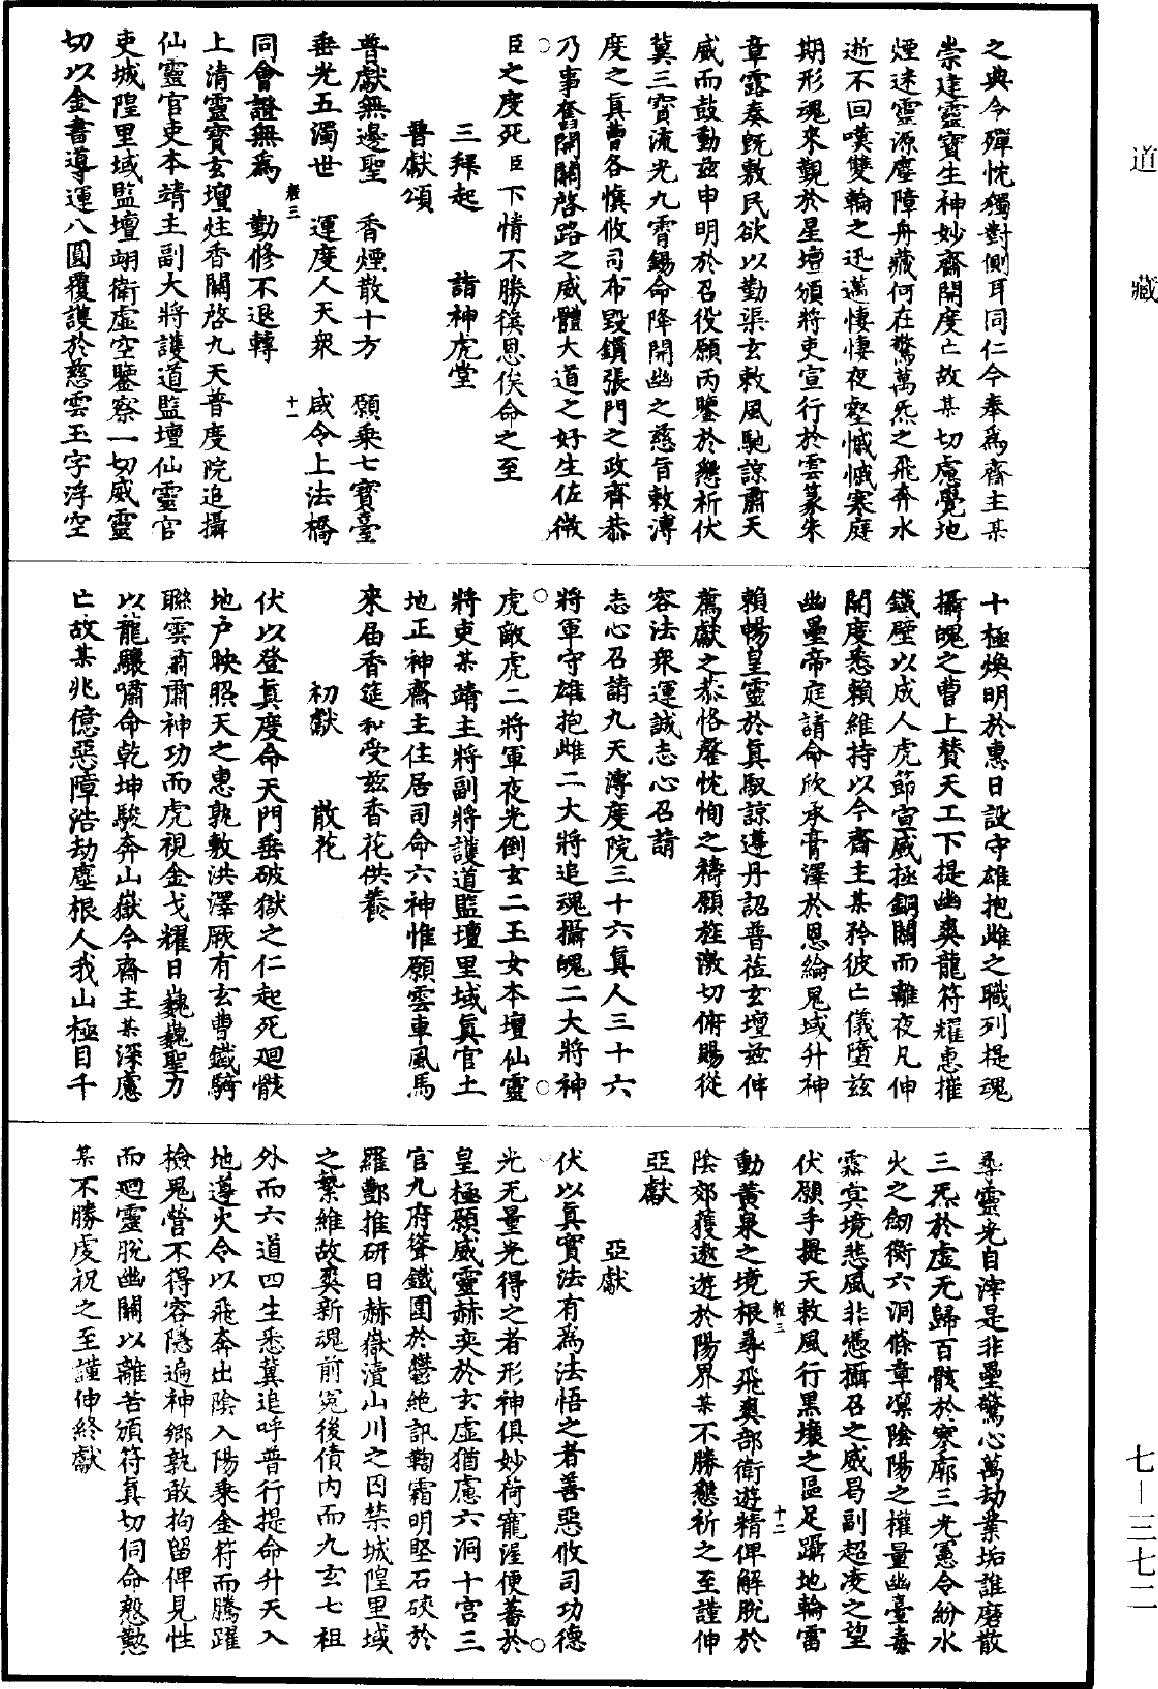 道藏
七－三七二
之典今殫忱獨對側耳同仁今奉為齋主某
崇建靈寶生神妙齋開度亡故某切慮覺地
煙迷靈源塵障舟藏何在驚萬炁之飛奔水
逝不回嘆雙輪之迅邁悽悽夜壑慽慽寒庭
期形魂來覲於星壇頒將吏宣行於雲篆朱
章露奏既敷民欲以勤渠玄敕風馳諒肅天
威而鼓動兹申明於召役願丙鑒於懇祈伏
冀三寶流光九霄錫命降開幽之慈旨敕溥
度之真曹各慎攸司布毀鎖張門之政齊恭
乃事奮開關啓路之威體大道之好生佐微
臣之度死臣下情不勝徯恩俟命之至
三拜起　詣神虎堂
普獻頌
普獻無邊聖　香煙散十方　願乘七寶臺
垂光五濁世　運度人天衆　咸令上法橋
同會證無為　勤修不退轉
上清靈寶玄壇炷香關啓九天普度院追攝
仙靈官吏本靖主副大將護道監壇仙靈官
吏城隍里域監壇翊衛虛空鑒察一切威靈
切以金書導運八圓覆護於慈雲玉字浮空
十極煥明於惠日設守雄抱雌之職列提魂
攝魄之曹上贊天工下提幽爽龍符耀惠摧
鐵壁以成人虎節宣威拯銅關而離夜凡伸
開度悉賴維持以今齋主某矜彼亡儀墮兹
幽壘帝庭請命欣承膏澤於恩綸鬼域升神
賴暢皇靈於真馭諒遵丹詔普蒞玄壇兹伸
薦獻之恭恪罄忱恂之禱願旌激切俯賜從
容法衆運誠志心召請
志心召請九天溥度院三十六真人三十六
將軍守雄抱雌二大將追魂攝魄二大將神
虎敵虎二將軍夜光倒玄二玉女本壇仙靈
將吏某靖主將副將護道監壇里域真官土
地正神齋主住居司命六神惟願雲車風馬
來屆香筵和受兹香花供養
初獻　散花
伏以登真度命天門垂破獄之仁起死廻骸
地户映照天之惠孰敷洪澤厥有玄曹鐵騎
聯雲肅肅神功而虎視金戈耀日巍巍聖力
以龍驤嘯命乾坤駿奔山嶽今齋主某深慮
亡故某兆億惡障浩劫塵根人我山極目千
尋靈光自滓是非壘驚心萬劫業垢誰磨散
三炁於虛无歸百骸於寒廓三光憲令紛水
火之劒衡六洞條章凜陰陽之權量幽臺毒
霧宾境悲風非憑攝召之威曷副超凌之望
伏願手提天敕風行黑壤之區足躡地輪雷
動黃泉之境根尋飛爽部衛遊精俾解脫於
陰郊獲遨遊於陽界某不勝懇祈之至謹伸
亞獻
亞獻
伏以真實法有為法悟之者善惡攸司功德
光无量光得之者形神俱妙荷寵渥便蕃於
皇極願威靈赫奕於玄虛猶慮六洞十宫三
官九府聳鐵圍於鬱絶訊鞫霜明堅石硤於
羅酆推研日赫嶽瀆山川之囚禁城隍里域
之縶維故爽新魂前冤後債内而九玄七祖
外而六道四生悉冀追呼普行提命升天入
地遵火令以飛奔出陰入陽乘金符而騰躍
檢鬼營不得容隱遍神鄉孰敢拘留俾見性
而廻靈脫幽關以離苦頒符真切伺命懃懃
某不勝虔祝之至謹伸終獻